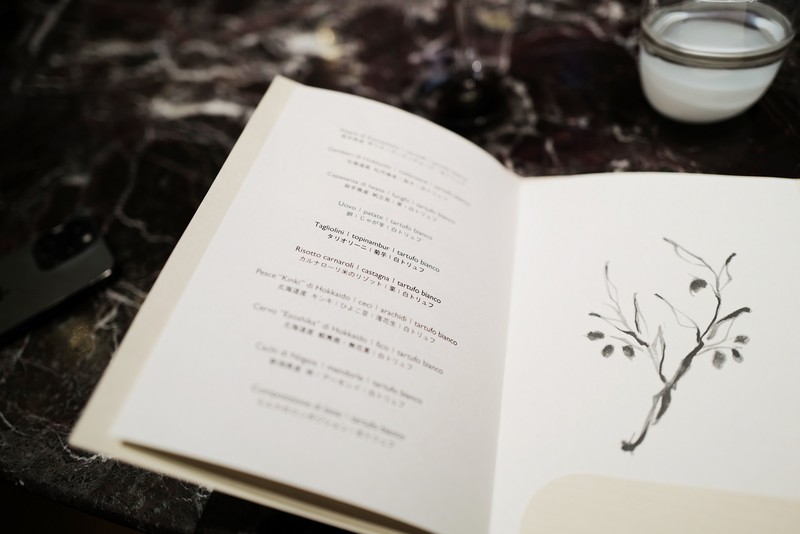 di Hokkaido
北海道産
Castagna di Iwate | funghi | tartufo bianco
Uovo | patate | tartufo bianco
卵 | じゃが芋 | 白トリュフ
Tagliolini | topinambur | tartufo bianco
タリオリーニ | 菊芋 | 白トリュフ
Risotto carnaroli | castagna | tartufo bianco
カルナローリ米のリゾット | 栗 | 白トリュフ
Pesce "Kinki" di Hokkaido | ceci | arachidi | tartufo bianco
北海道産 キンキ | ひよこ豆 | 落花生 | 白トリュフ
Cervo "Ezoshika" di Hokkaido | fico | tartufo bianco
北海道産 蝦夷鹿 | 無花果 | 白トリュフ
Cachi di Niigata | mandorle | tartufo bianco
新潟県産 柿 | アーモンド | 白トリュフ
tartufo bianco